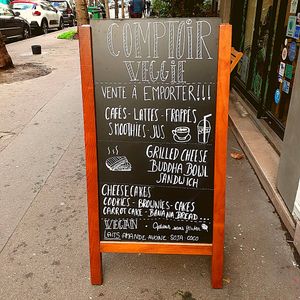 COMPTOIR
VEGGIE
VENTE À EMPORTER!!!
CAFÉS - LATTES - FRAPPÉS
SMOOTHIES - JUS
GRILLED CHEESE
BUDDHA BOWL
SANDWICH
CHEESECAKES
COOKIES - BROWNIES - CAKES
CARROT CAKE - BANANA BREAD
VEGAN - Options sans gluten
LAITS AMANDE AVOINE SOJA COCO